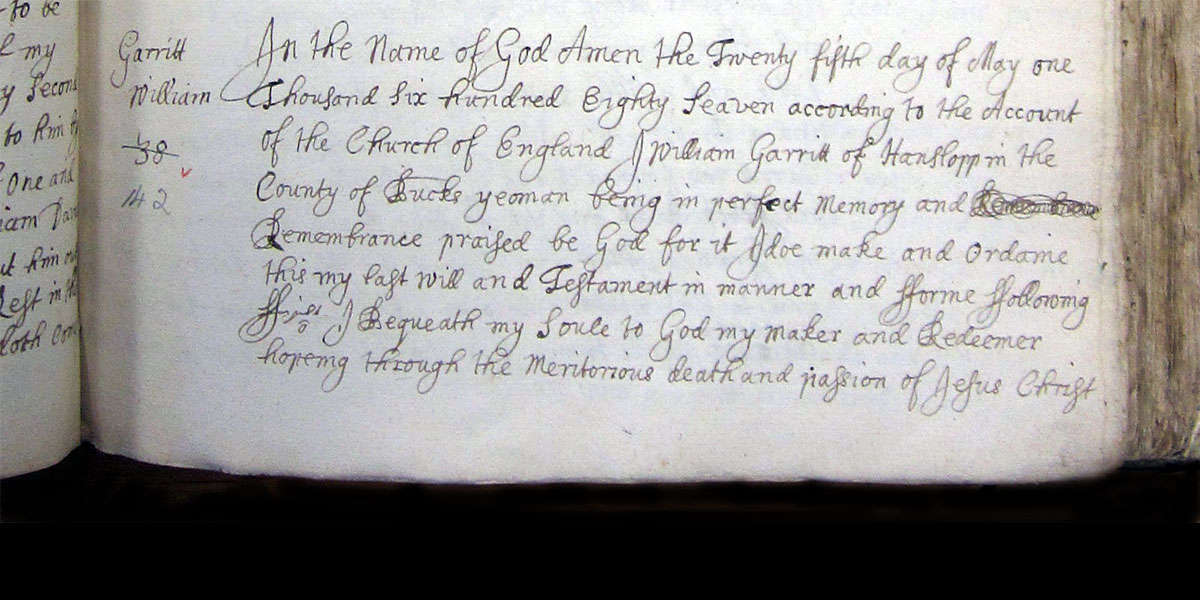 to be
my
Second
to him
One and
iam
ut him
Rest in
Garritt
William
38
142
In the Name of God Amen the Twenty fifth day of May one
Thousand Six hundred Eighty Seaven according to the Account
of the Church of England I William Garritt of Hanslopp in the
County of Bucks yeoman being in perfect Memory and
Remembrance praised be God for it I doe make and Ordaine
this my last will and Testament in manner and fforme ffollowing
I Bequeath my Soule to God my maker and Redeemer
hopeing through the Meritorious death and passion of Jesus Christ